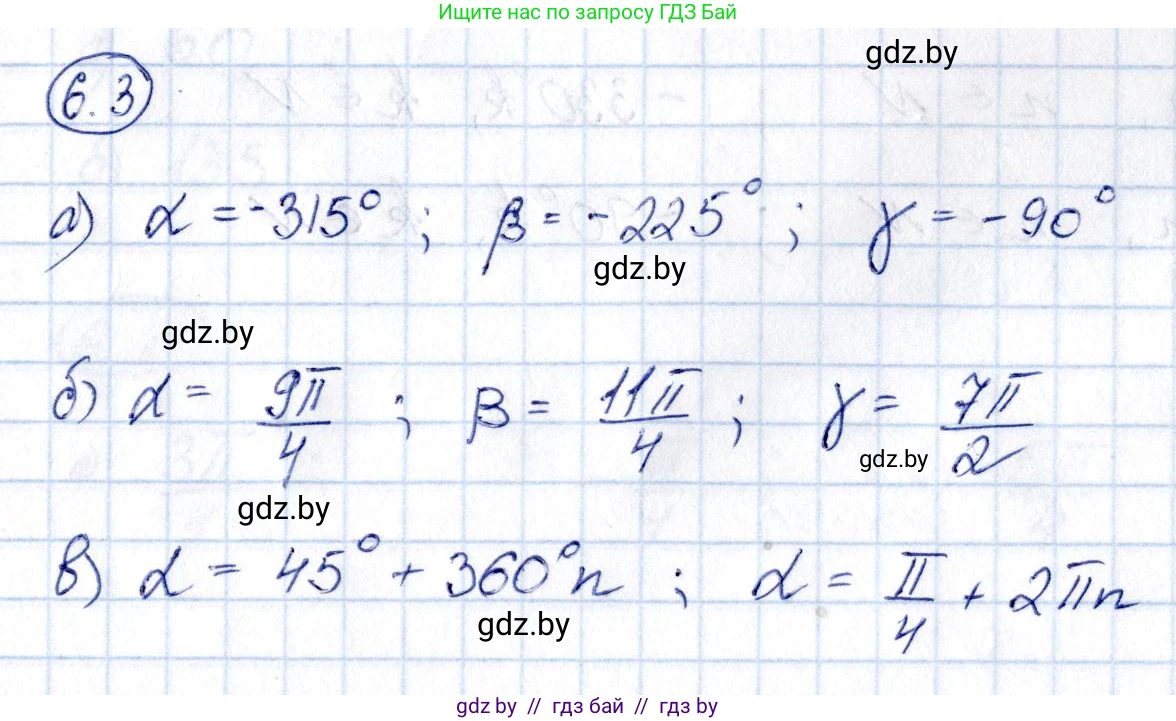 Ищите нас по запросу ГДЗ Бай
gdz.by
6.3
а) α = -315° ; β = -225° ; γ = -90°
gdz.by
gdz.by
б) α = 9π/4 ; β = 11π/4 ; γ = 7π/2
gdz.by
gdz.by
в) α = 45° + 360°n ; α = π/4 + 2πn
gdz.by
gdz.by // гдз бай // гдз by